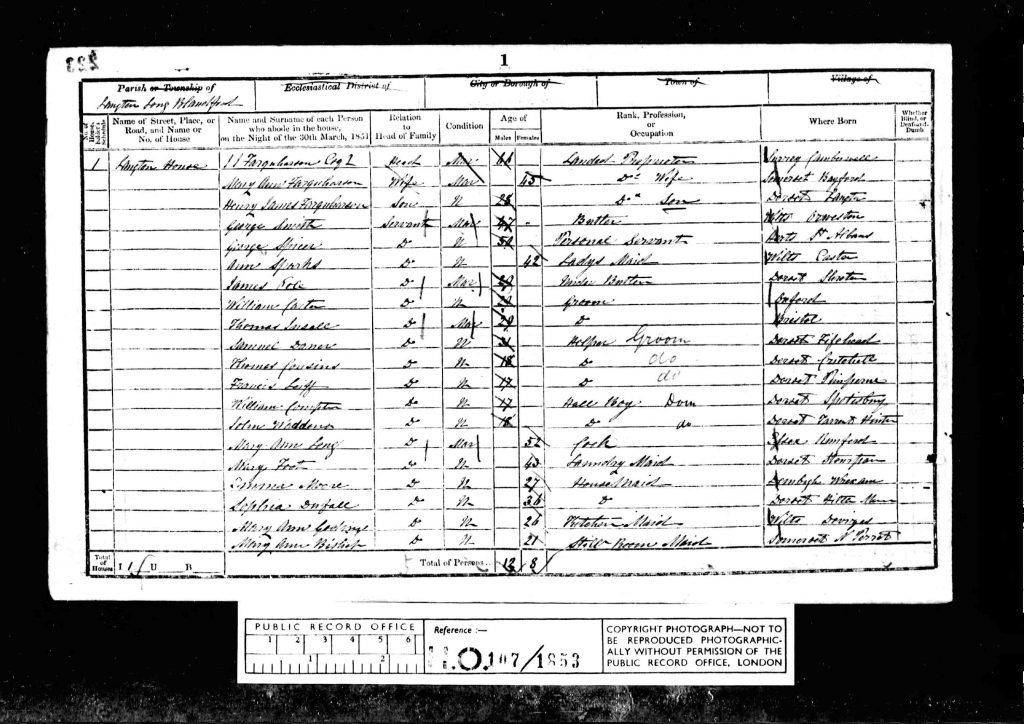 223
1
Parish or Township of
Langton Long Blandford
Ecclesiastical District of
City or Borough of
Town of
Village of
No. of House- holder's Schedule
Name of Street, Place, or Road, and Name or No. of House
Name and Surname of each Person who abode in the house, on the Night of the 30th March, 1851
Relation to Head of Family
Condition
Age of
Males Females
Rank, Profession, or Occupation
Where Born
Whether Blind, or Deaf-and-Dumb
1 Langton House J J Farquharson Esqr Head Mar 66 Landed Proprietor Surrey Camberwell
Mary Ann Farquharson Wife Mar 45 Do Wife Somerset Bayford
Henry James Farquharson Son U 28 Do Son Dorset Langton
George Smith Servant Mar 47 - Butler Wilts
George Spicer D U 50 Personal Servant Herts St Albans
Ann Sparks D U 42 Ladys Maid Wilts
James Cole D Mar 29 Under Butler Dorset Shroton
William Carter D U 29 Groom Oxford
Thomas D Mar 29 D Bristol
Samuel D U 21 Helper Groom Dorset Fifehead
Thomas Cousins D U 18 D do Dorset Critchell
Francis D U 17 D do Dorset Pimperne
William Compton Do U 17 Hall Boy Dom Dorset Spetisbury
John D U D do Dorset Tarrant Hinton
Mary Ann Long D Mar 52 Cook Romford
Mary Foot D U 43 Laundry Maid Dorset
Emma Moore D U 27 House Maid Denbigh Wrexham
Sophia D U 36 D Dorset
Mary Ann D U 26 Kitchen Maid Wilts Devizes
Mary Ann Bishop D U 21 Still Room Maid Somerset N Perrot
Total of Houses I 1 U B Total of Persons 12 8
PUBLIC RECORD OFFICE
1 2 3 4 5 6
1 2
Reference :—
H.O. 107/1853
COPYRIGHT PHOTOGRAPH—NOT TO
BE REPRODUCED PHOTOGRAPHIC-
ALLY WITHOUT PERMISSION OF THE
PUBLIC RECORD OFFICE, LONDON